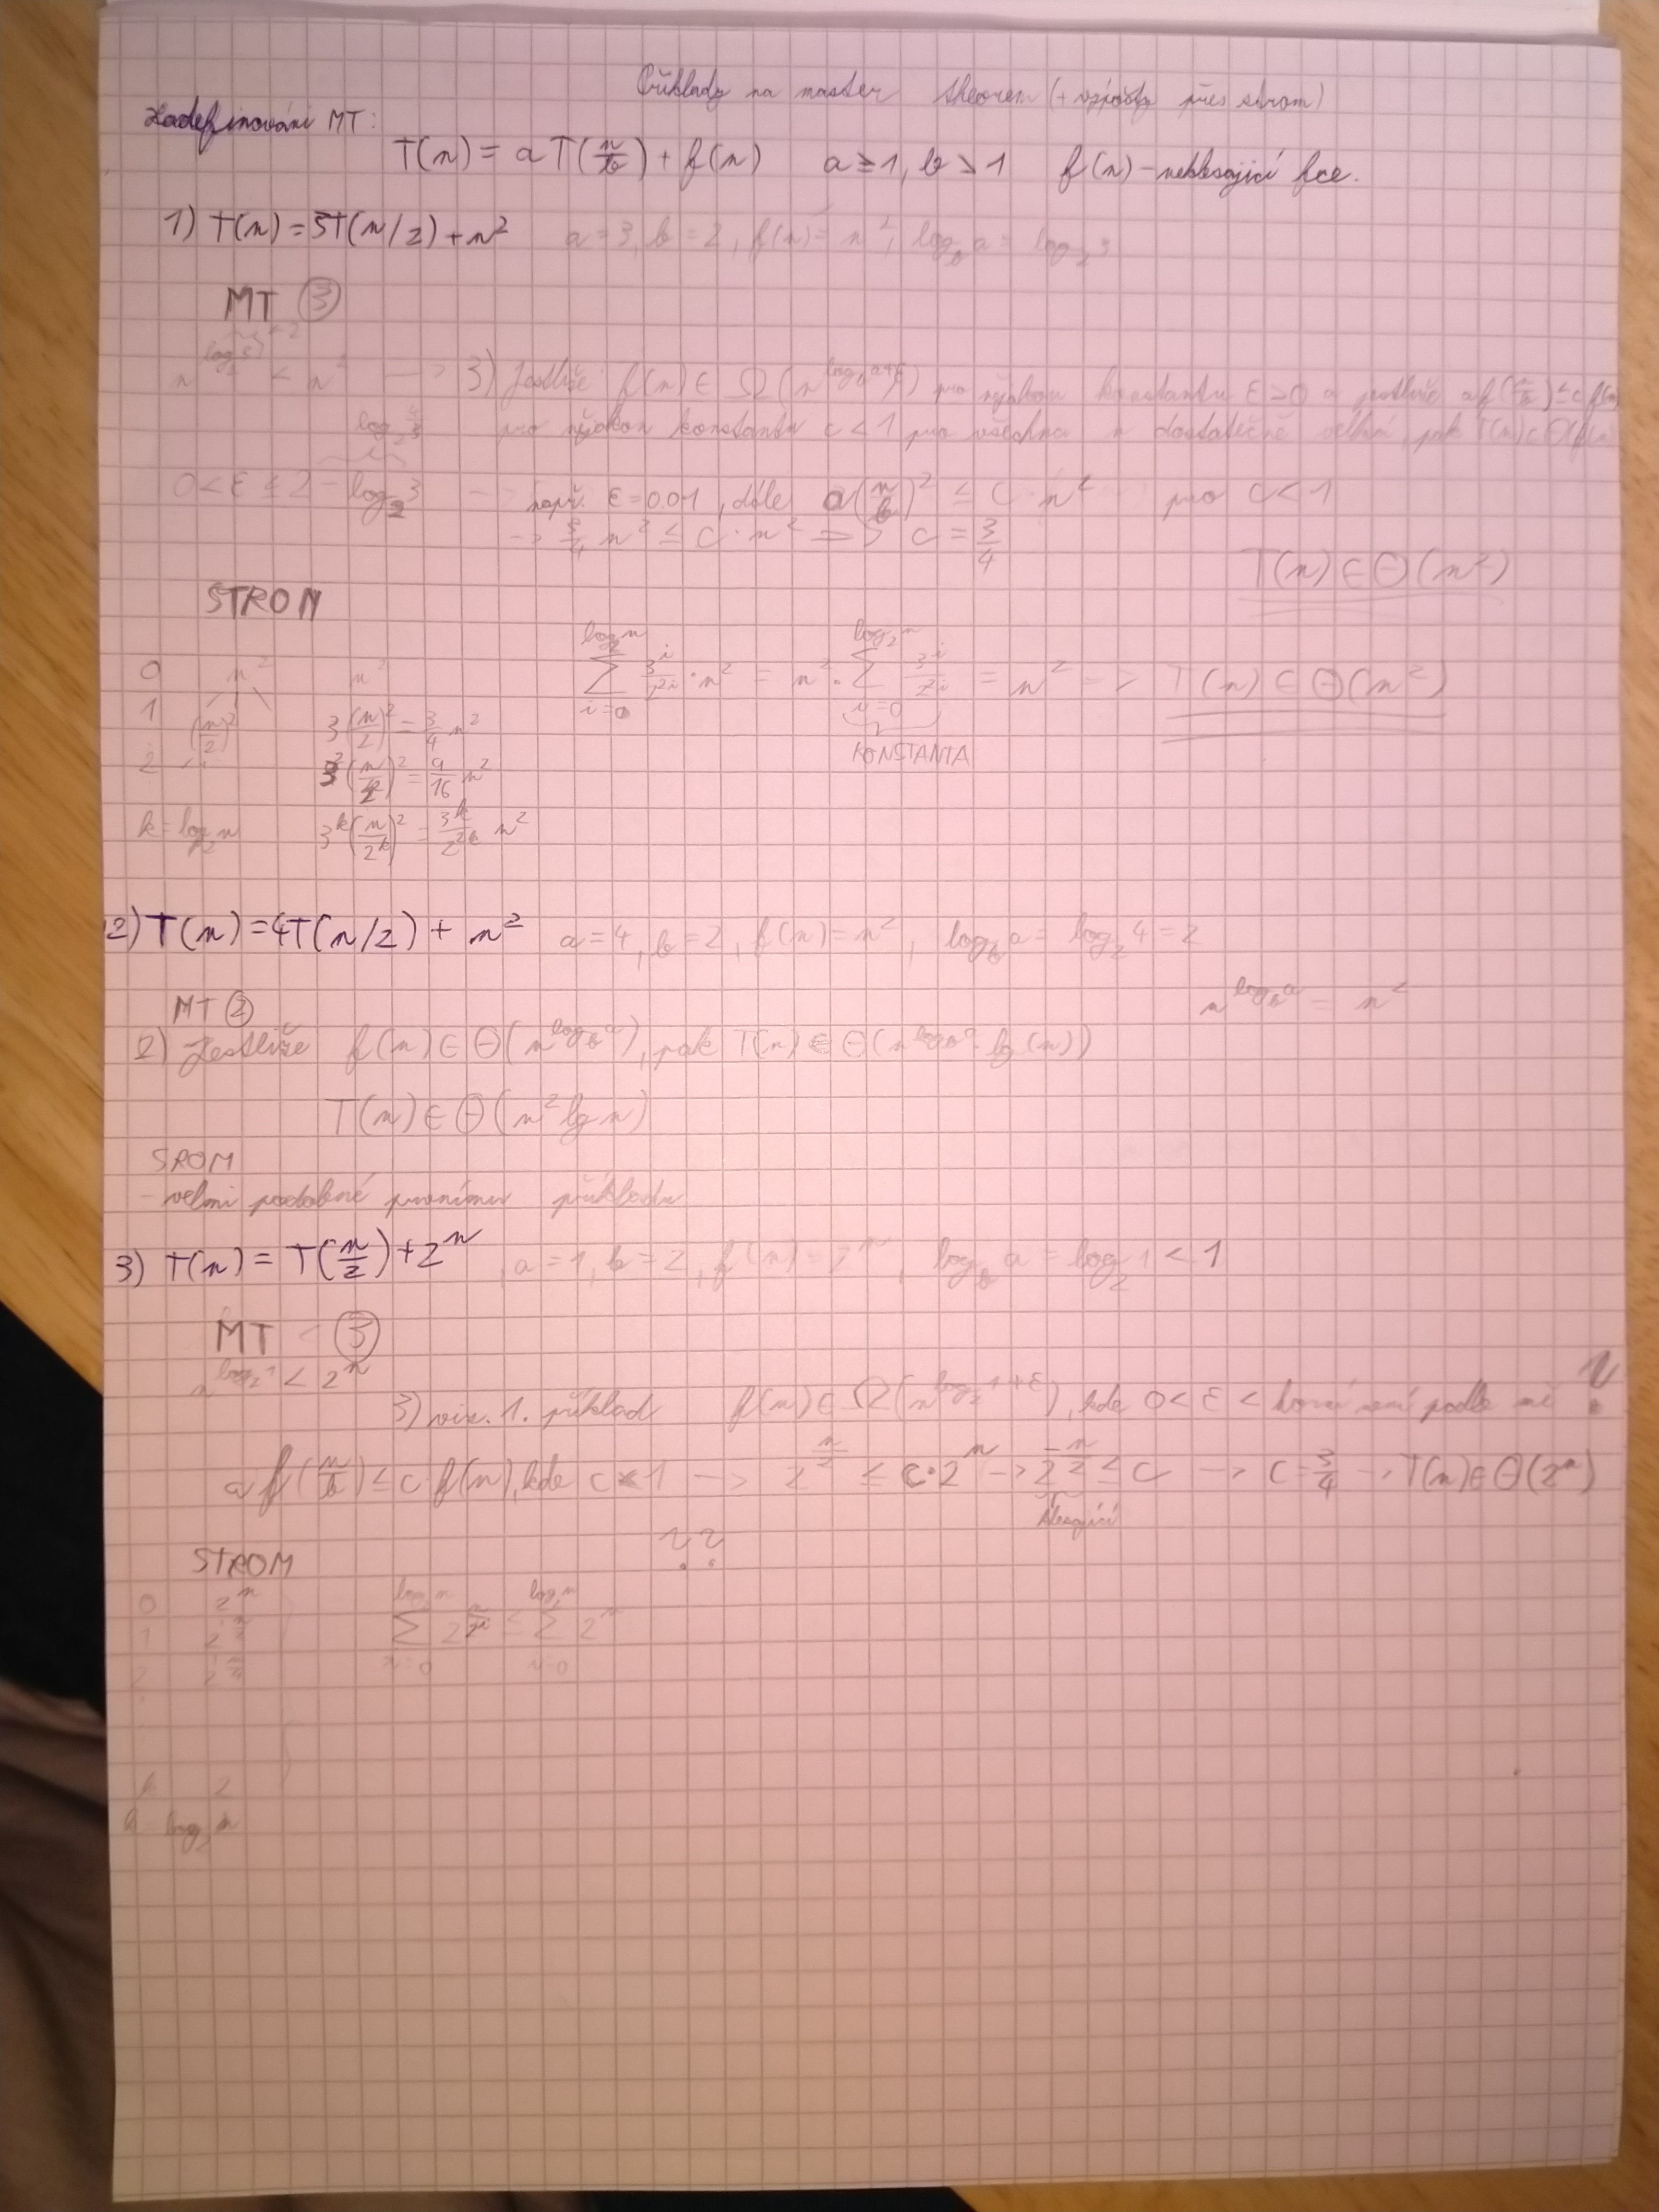 Příklady na master theorem (+ výpočty přes strom)
Zadefinování MT:
T(n) = a T(n/b) + f(n) a ≥ 1, b > 1 f(n) - neklesající fce.
1) T(n) = 3T(n/2) + n² a = 3, b = 2, f(n) = n², log_b a = log_2 3
MT ③
n^(log_2 3) < n² → 3) Jestliže f(n) ∈ Ω(n^(log_b a+ε)) pro nějakou konstantu ε > 0 a jestliže af(n/b) ≤ c f(n)
pro nějakou konstantu c < 1 pro všechna n dostatečně velká, pak T(n) ∈ Θ(f(n))
0 < ε ≤ 2 - log_2 3 → např. ε = 0.01, dále a(n/b)² ≤ c · n² pro c < 1
→ 3/4 n² ≤ c · n² => c = 3/4
T(n) ∈ Θ(n²)
STROM
0 n² n²
1 (n/2)² 3(n/2)² = 3/4 n²
2 3²(n/2)² = 9/16 n²
k = log_2 n 3^k (n/2^k)² = 3^k/2^2k n²
∑_{i=0}^{log_2 n} 3^i/2^2i · n² = n² · ∑_{i=0}^{log_2 n} 3^i/2^i = n² → T(n) ∈ Θ(n²)
KONSTANTA
2) T(n) = 4T(n/2) + n² a = 4, b = 2, f(n) = n², log_b a = log_2 4 = 2
n^(log_b a) = n²
MT ②
2) Jestliže f(n) ∈ Θ(n^(log_b a)), pak T(n) ∈ Θ(n^(log_b a) · lg(n))
T(n) ∈ Θ(n² lg n)
SROM
- velmi podobné prvnímu příkladu
3) T(n) = T(n/2) + 2^n, a = 1, b = 2, f(n) = 2^n, log_b a = log_2 1 < 1
MT ③
n^(log_2 1) < 2^n
3) viz. 1. příklad f(n) ∈ Ω(n^(log_2 1+ε)), kde 0 < ε < horní není podle mě ?
a f(n/b) ≤ c f(n), kde c < 1 → 2^(n/2) ≤ c · 2^n → 2^(-n/2) ≤ c → c = 3/4 → T(n) ∈ Θ(2^n)
klesající
??
STROM
0 2^n
1 2^(n/2)
2 2^(n/4)
∑_{i=0}^{log_2 n} 2^(n/2^i) ≤ ∑_{i=0}^{log_2 n} 2^n
k 2
log_2 n